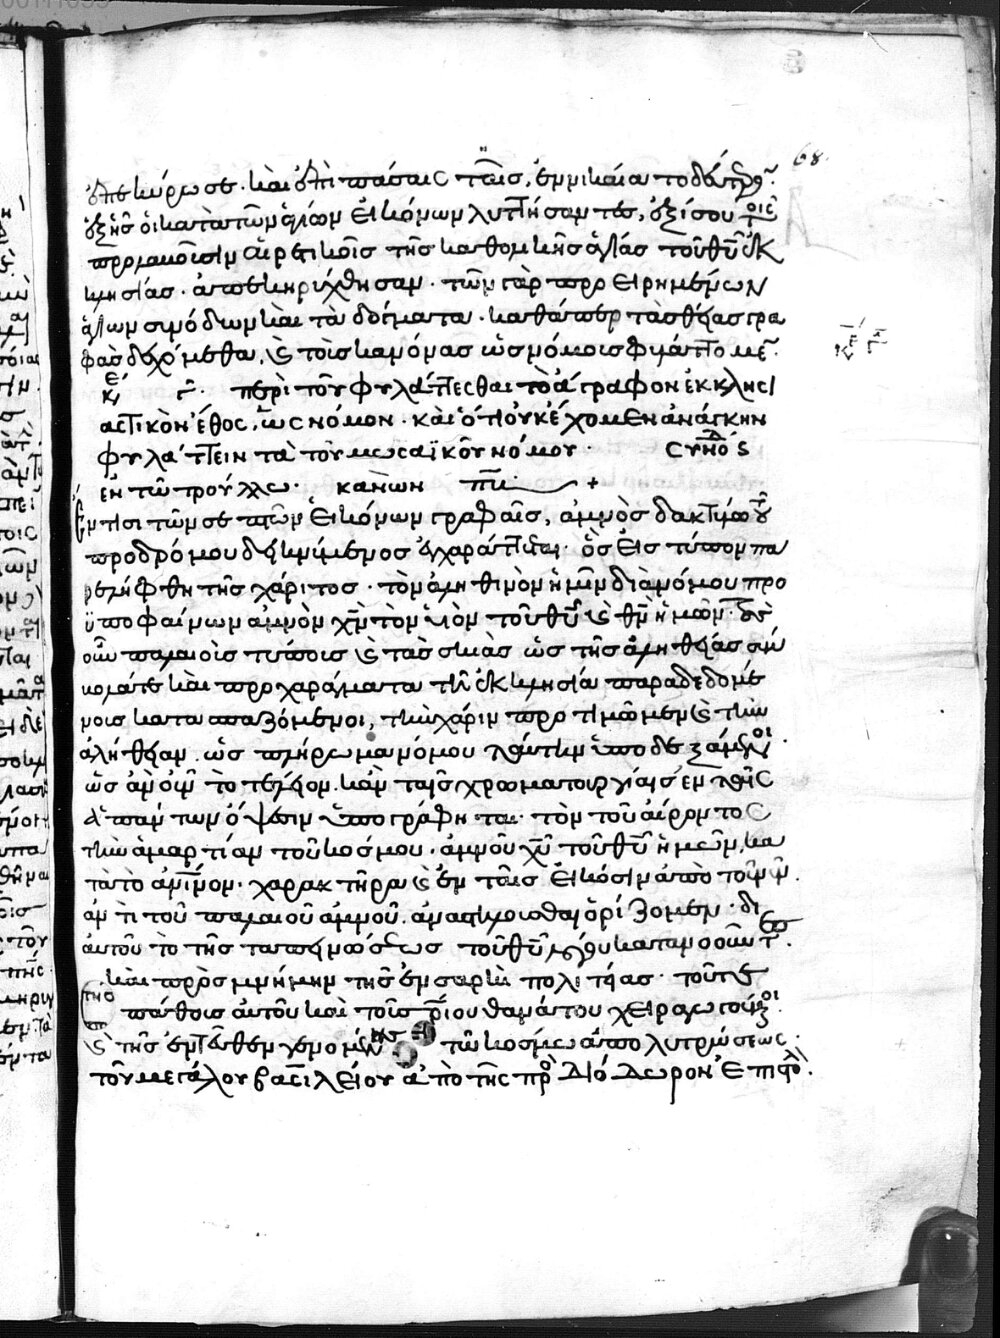 ἐπεκύρωσε. καὶ ἐπὶ πάσαις ταῖς,
ἑξῆς οἱ κατὰ τῶν ἁγίων εἰκόνων λυττήσαντες,
αἱρετικοῖς τῆς καθολικῆς ἁγίας τοῦ θῡ ἐκ
κλησίας. ἀπεκηρύχθησαν. τῶν γὰρ προειρημένων
ἁγίων συνόδων καὶ τὰ δόγματα. καθάπερ τὰς θείας γρα
φὰς δεχόμεθα, ϗ τοὺς κανόνας ὡς νόμους φυλάττομε̅
κε. γ. περὶ τοῦ φυλάττεσθαι τὸ ἄγραφον ἐκκλησι
αστικὸν ἔθος, ὡς νόμον. καὶ ὅτι οὐκ ἔχομεν ἀνάγκην
φυλάττειν τὰ τοῦ μωσαϊκοῦ νόμου. συνόδ
ἐν τῶ τρούλλω. κανὼν πβ +
Ἔν τισι τῶν σεπτῶν εἰκόνων γραφαῖς, ἀμνὸς δακτύλω τοῦ
προδρόμου δεικνύμενος ἐγχαράττεται. ὃς εἰς τύπον πα
ρελήφθη τῆς χάριτος. τὸν ἀληθινὸν ἡμῖν διὰ νόμου προ
ϋποφαίνων ἀμνὸν χν̅ τὸν υἱὸν τοῦ θῡ ϗ θν̅ ἡμῶν. τοὺς
οὖν παλαιοὺς τύπους ϗ τὰς σκιὰς ὡς τῆς ἀληθείας σύμ
βολά τε καὶ προχαράγματα τῆ ἐκκλησία παραδεδομέ
νους κατασπαζόμενοι, τὴν χάριν προτιμῶμεν ϗ τὴν
ἀλήθειαν. ὡς πλήρωμα νόμου ταύτην ὑποδεξάμενοι.
ὡς ἂν οὖν τὸ τέλειον. κἂν ταῖς χρωματουργίαις ἐν ταῖς
ἁπάντων ὄψεσιν ὑπογράφηται. τὸν τοῦ αἴροντος
τὴν ἁμαρτίαν τοῦ κόσμου. ἀμνοῦ χῡ τοῦ θῡ ἡμῶν, κα
τὰ τὸ ἀνϊνον. χαρακτῆρα ϗ ἐν ταῖς εἰκόσιν ἀπὸ τοῦ νῦν.
ἀντὶ τοῦ παλαιοῦ ἀμνοῦ. ἀναστηλοῦσθαι ὁρίζομεν. δι
αὐτοῦ τὸ τῆς ταπεινώσεως τοῦ θῡ λόγου κατανοοῦντ.
καὶ πρὸς μνήμην τῆς ἐν σαρκὶ πολιτείας. τοῦ τε
πάθους αὐτοῦ καὶ τοῦ σρ̅ίου θανάτου χειραγωγούμενοι
ϗ τῆς ἐντεῦθεν γενομένης τῶ κόσμω ἀπολυτρώσεως.
τοῦ μεγάλου βασιλείου ἀπὸ τῆς πρὸ Διόδωρον Ἐπιστολ.